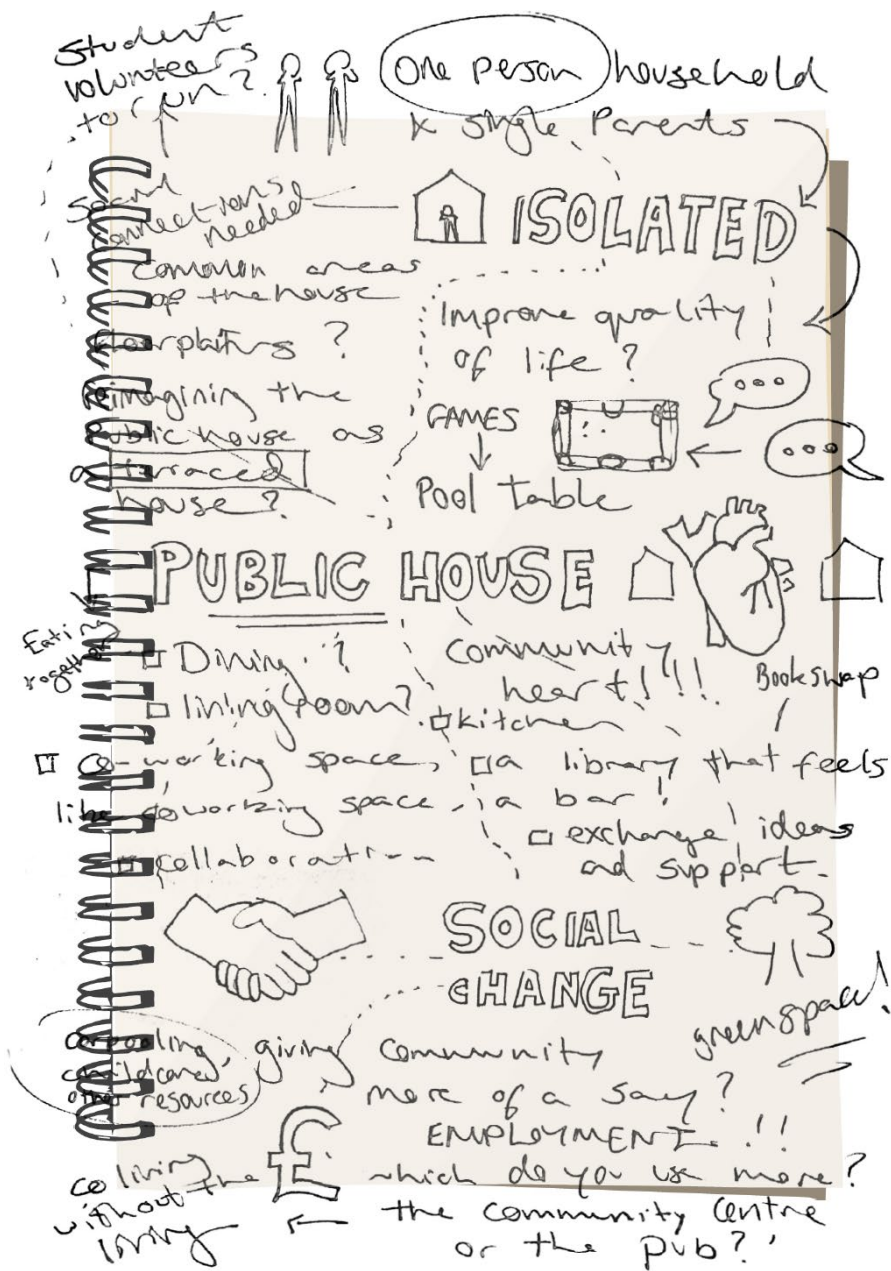 Student
volunteers
to run?
One person household
& single Parents
Social
connections
needed
ISOLATED
common areas
of the house
floorplans ?
Reimagining the
Public house as
a terraced
house?
Improve quality
of life ?
GAMES
Pool Table
PUBLIC HOUSE
Eating
together
Dining ?
living room?
Community
heart!!!!
kitchen
Book swap
Co-working space, a library that feels
like coworking space, a bar!
collaboration
exchange ideas
and support.
SOCIAL
CHANGE
green space!
carpooling,
childcare,
other resources
giving community
more of a say?
EMPLOYMENT !!
£
co living
without the
living
which do you use more?
the community centre
or the pub?